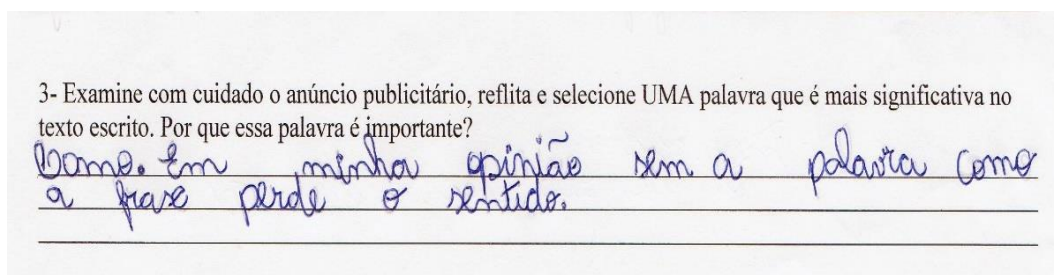 3- Examine com cuidado o anúncio publicitário, reflita e selecione UMA palavra que é mais significativa no
texto escrito. Por que essa palavra é importante?
Como. Em minha opinião sem a palavra como
a frase perde o sentido.